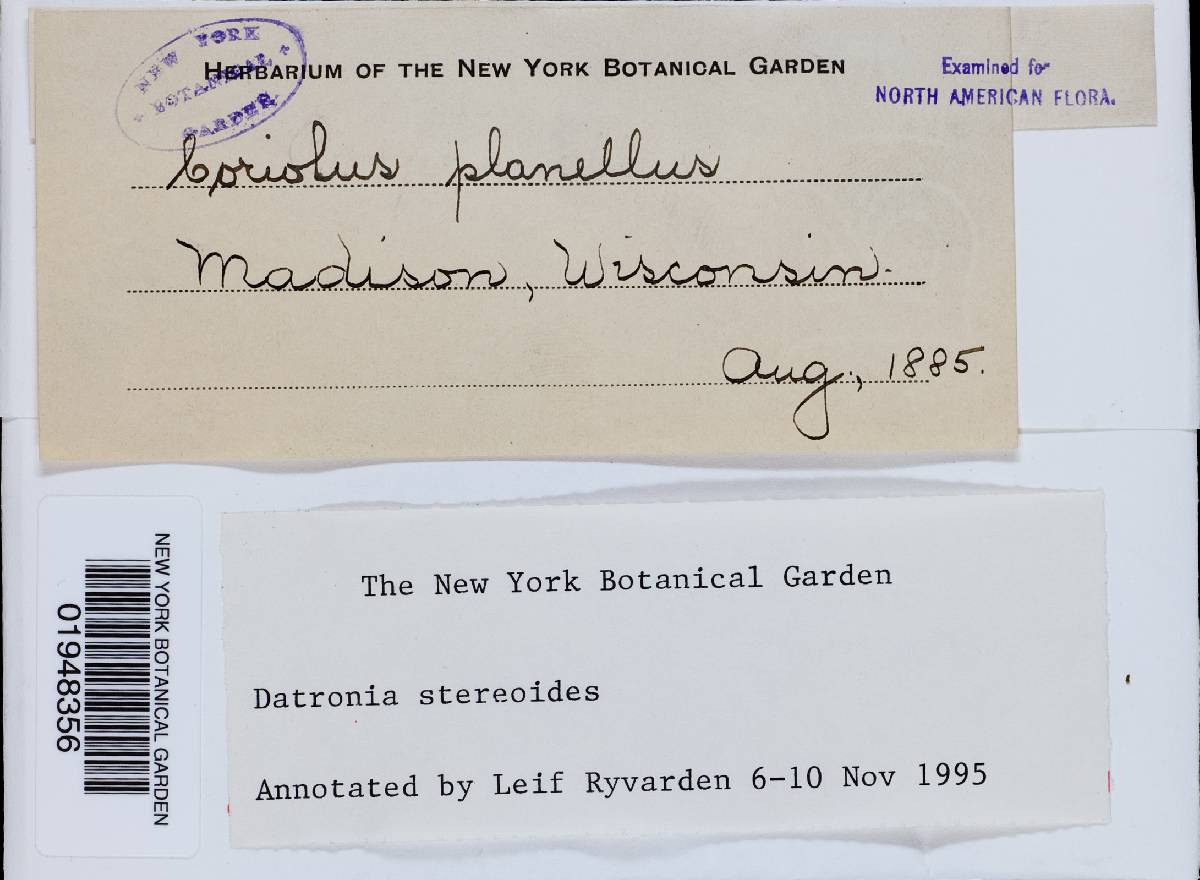 NEW YORK
BOTANICAL
GARDEN
HERBARIUM OF THE NEW YORK BOTANICAL GARDEN
Examined for
NORTH AMERICAN FLORA.
Coriolus planellus
Madison, Wisconsin.
Aug., 1885.
NEW YORK BOTANICAL GARDEN
01948356
The New York Botanical Garden
Datronia stereoides
Annotated by Leif Ryvarden 6-10 Nov 1995